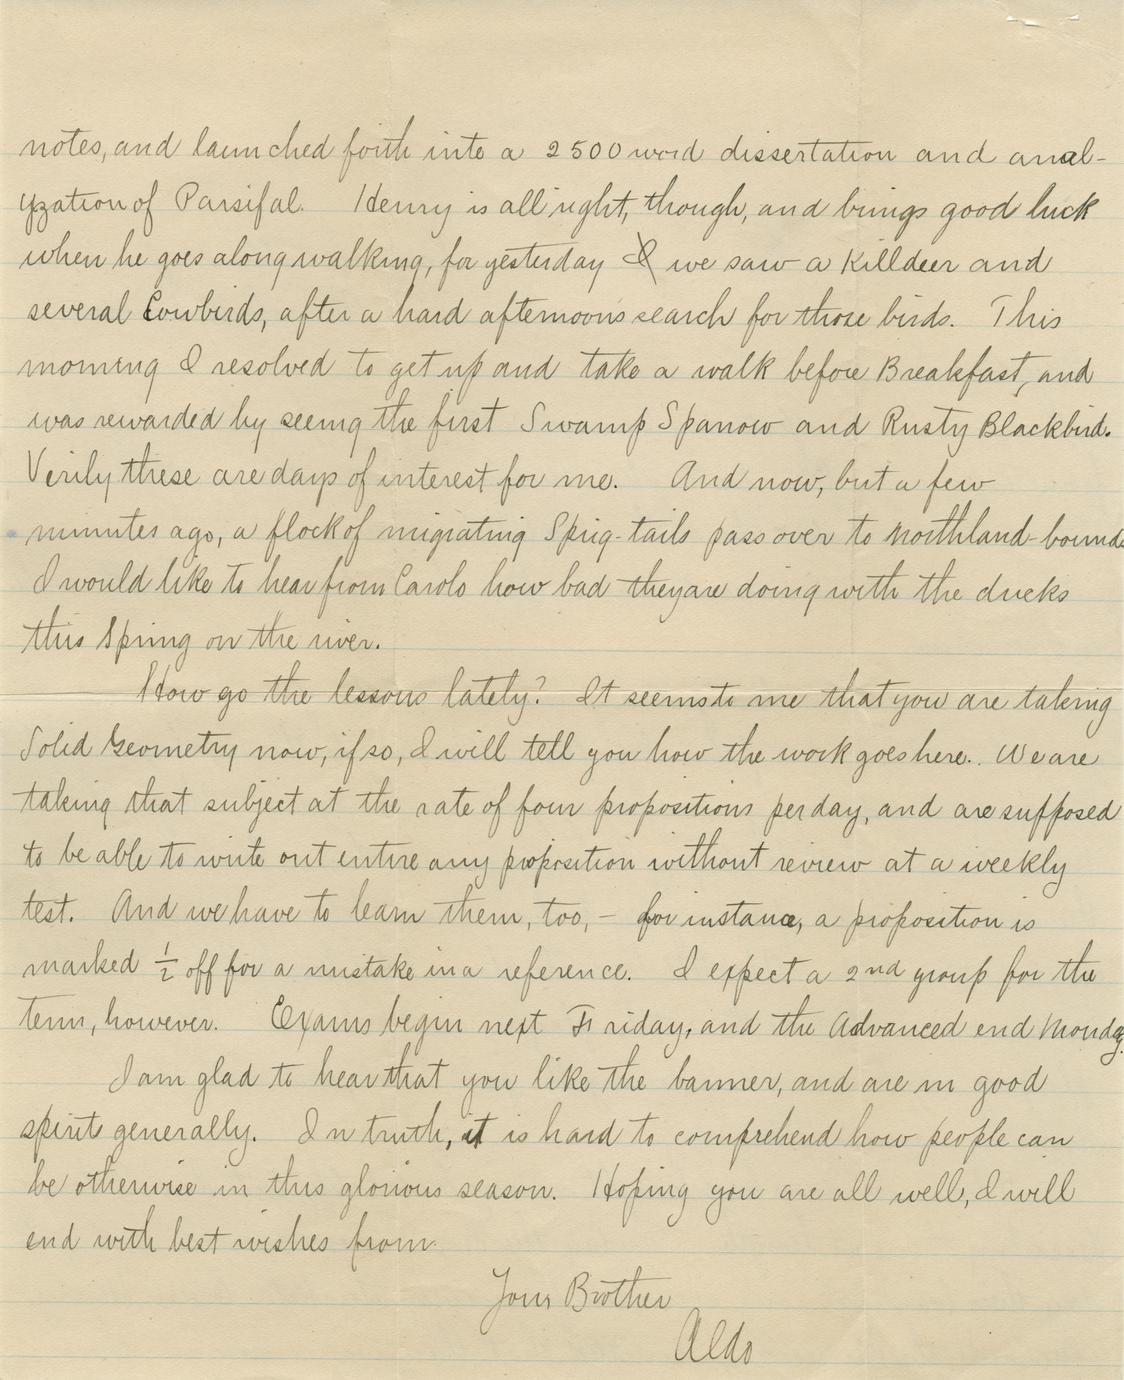 notes, and launched forth into a 2500 word dissertation and anal-
yzation of Parsifal. Henry is all right, though, and brings good luck
when he goes along walking, for yesterday I we saw a Killdeer and
several Cowbirds, after a hard afternoons search for those birds. This
morning I resolved to get up and take a walk before Breakfast, and
was rewarded by seeing the first Swamp Sparrow and Rusty Blackbird.
Verily these are days of interest for me. And now, but a few
minutes ago, a flock of migrating Sprig-tails pass over to Northland-bound
I would like to hear from Carolo how bad they are doing with the ducks
this Spring on the river.
How go the lessons lately? It seems to me that you are taking
Solid Geometry now, if so, I will tell you how the work goes here. We are
taking that subject at the rate of four propositions per day, and are supposed
to be able to write out entire any proposition without review at a weekly
test. And we have to learn them, too, – for instance, a proposition is
marked ½ off for a mistake in a reference. I expect a 2nd group for the
term, however. Exams begin next Friday, and the Advanced end Monday.
I am glad to hear that you like the banner, and are in good
spirits generally. In truth, it is hard to comprehend how people can
be otherwise in this glorious season. Hoping you are all well, I will
end with best wishes from
Your Brother
Aldo